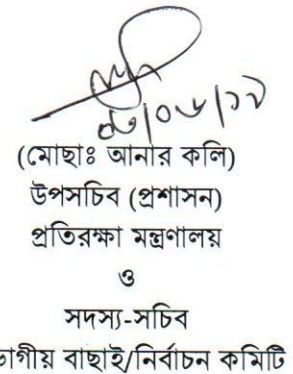 (মোছাঃ আনার কলি)
উপসচিব (প্রশাসন)
প্রতিরক্ষা মন্ত্রণালয়
ও
সদস্য-সচিব
ভাগীয় বাছাই/নির্বাচন কমিটি